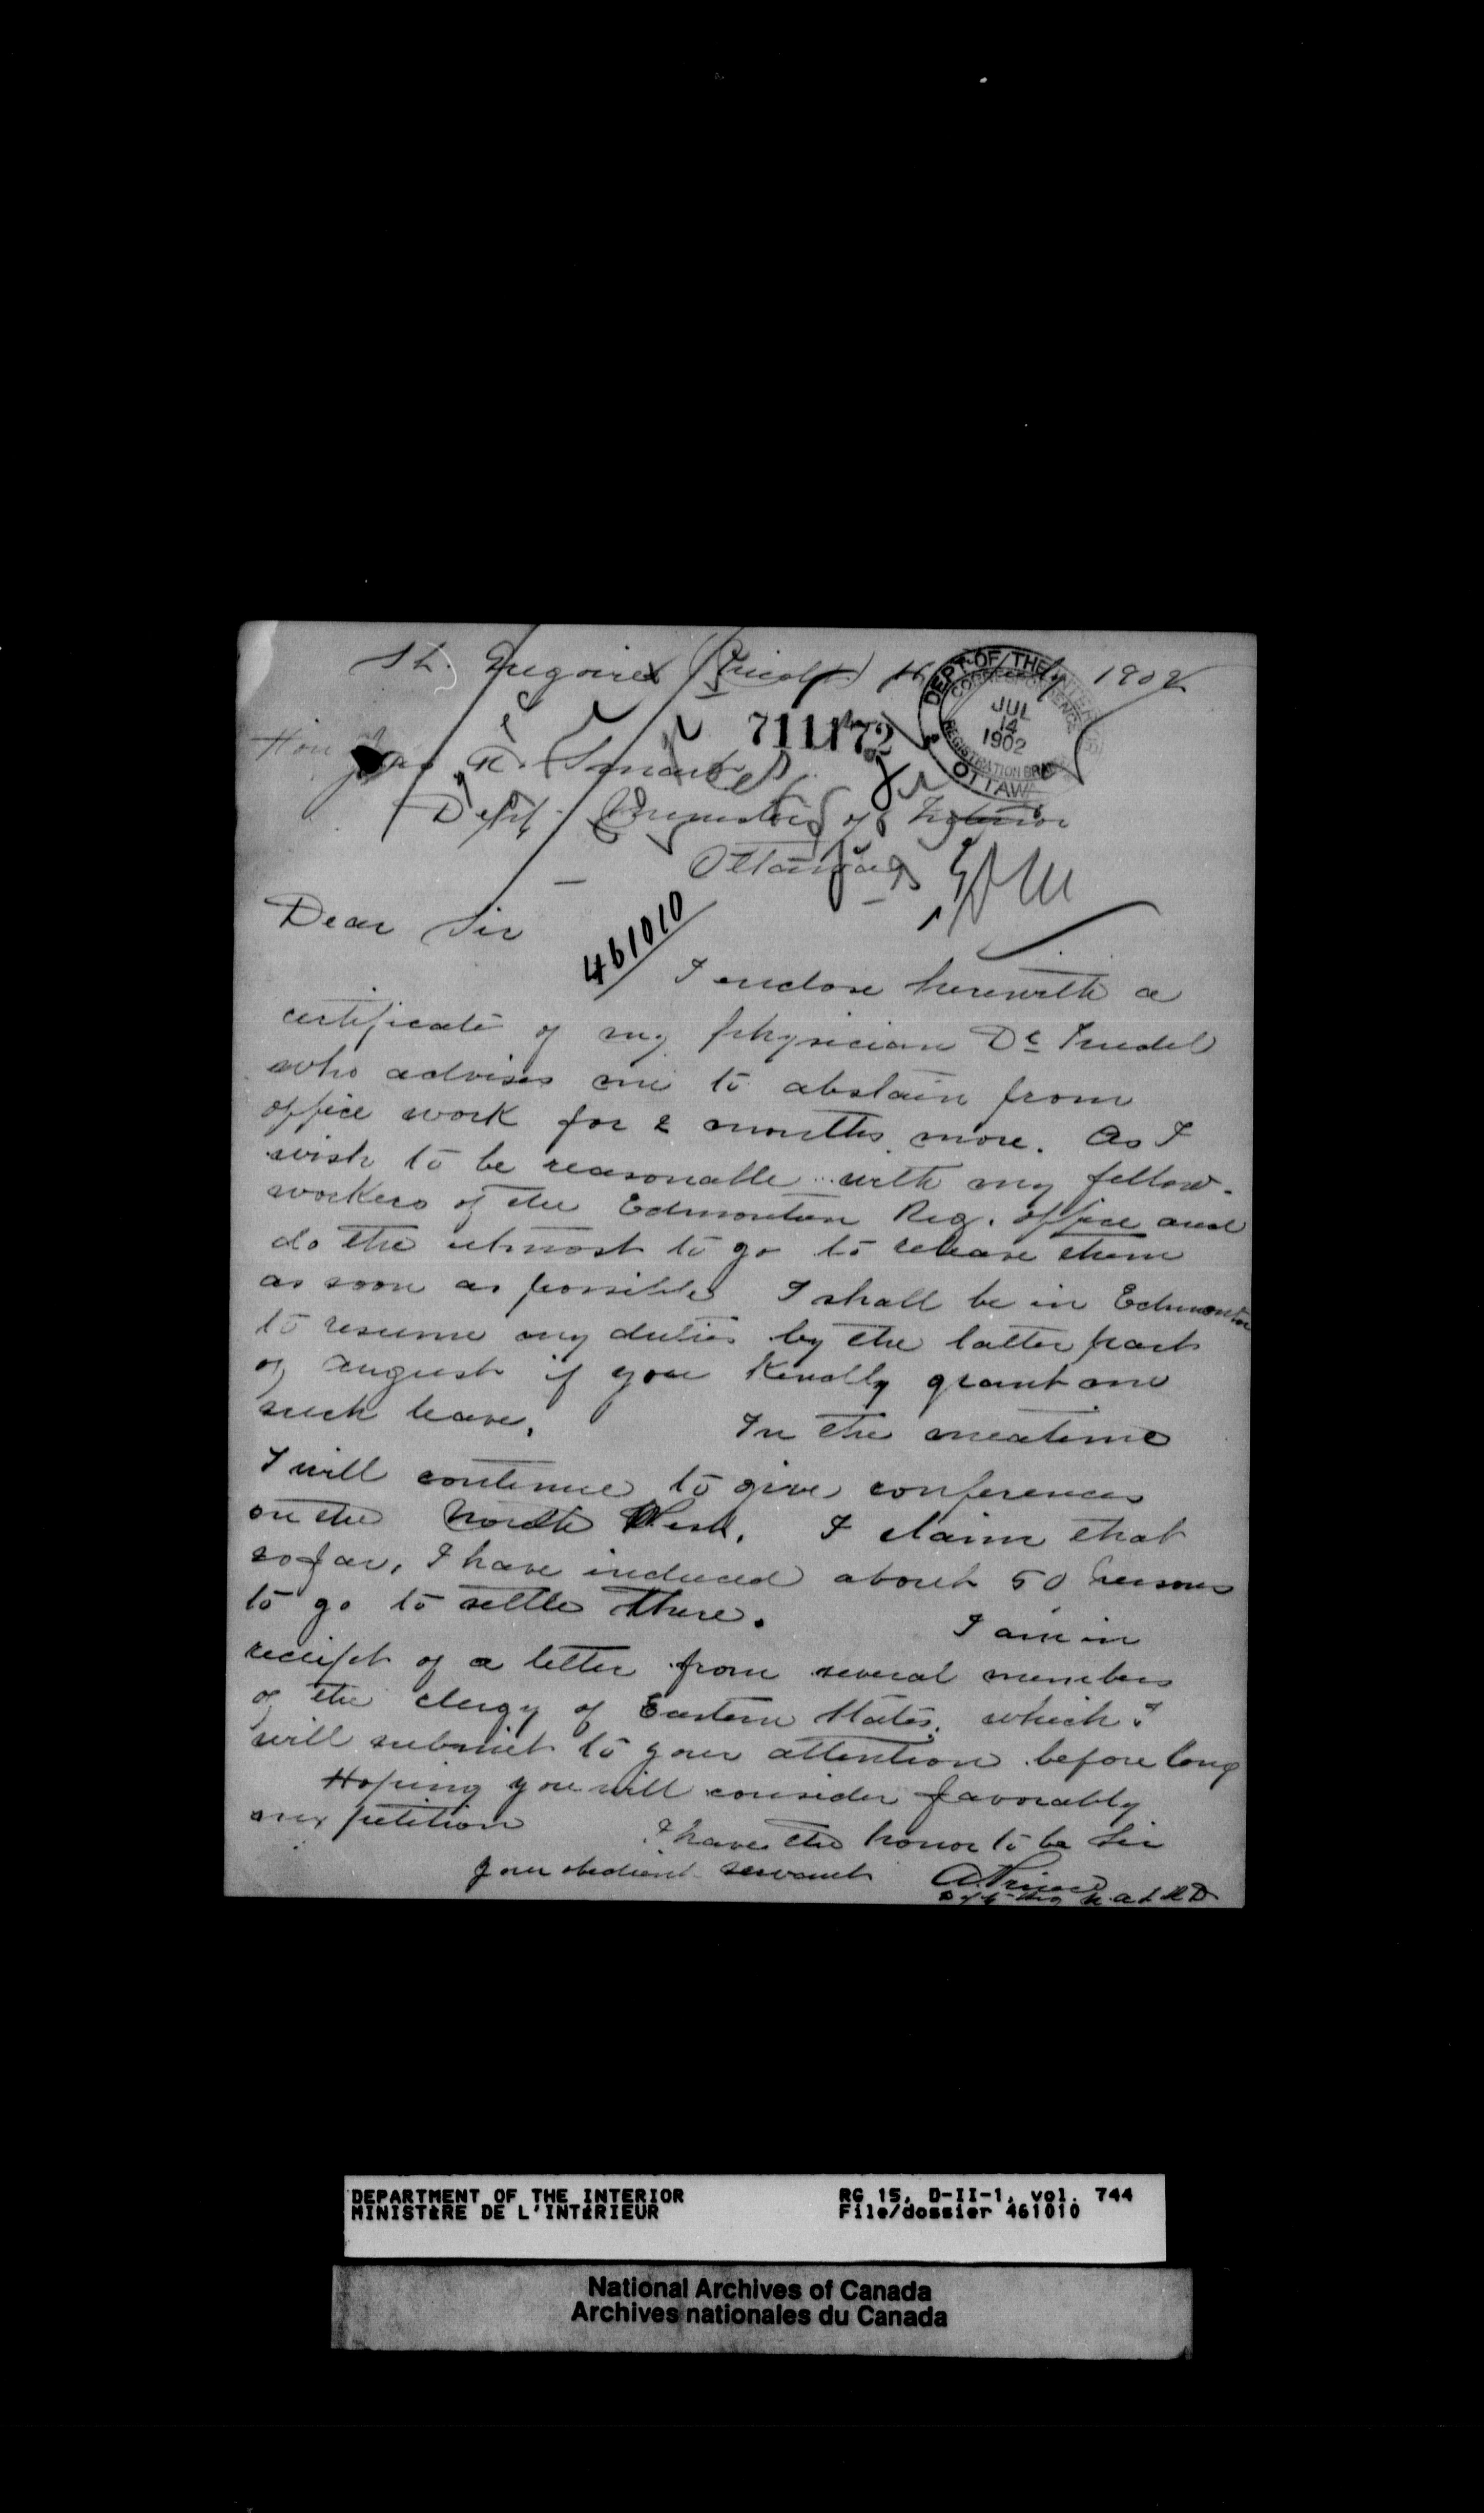 St. Gregoire (Nicolet) July 1902
DEPT. OF THE INTERIOR
CORRESPONDENCE
JUL
14
1902
REGISTRATION BRANCH
OTTAWA
711172
Hon Jas A. Smart
Dept. Minister of Interior
Ottawa
Dear Sir
461010
I enclose herewith a
certificate of my physician Dr Trudel
who advises me to abstain from
office work for 2 months more. As I
wish to be reasonable with my fellow-
workers of the Edmonton Reg. office and
do the utmost to go to release them
as soon as possible I shall be in Edmonton
to resume my duties by the latter part
of August if you kindly grant me
such leave. In the meatime
I will continue to give conferences
on the North West. I claim that
so far, I have induced about 50 persons
to go to settle there. I am in
receipt of a letter from several members
of the clergy of Eastern States, which I
will submit to your attention before long
Hoping you will consider favorably
my petition I have the honor to be Sir
your obedient servant A Prince
Dept Reg N. A. L. R D
DEPARTMENT OF THE INTERIOR RG 15, D-II-1, vol. 744
MINISTÈRE DE L'INTÉRIEUR File/dossier 461010
National Archives of Canada
Archives nationales du Canada